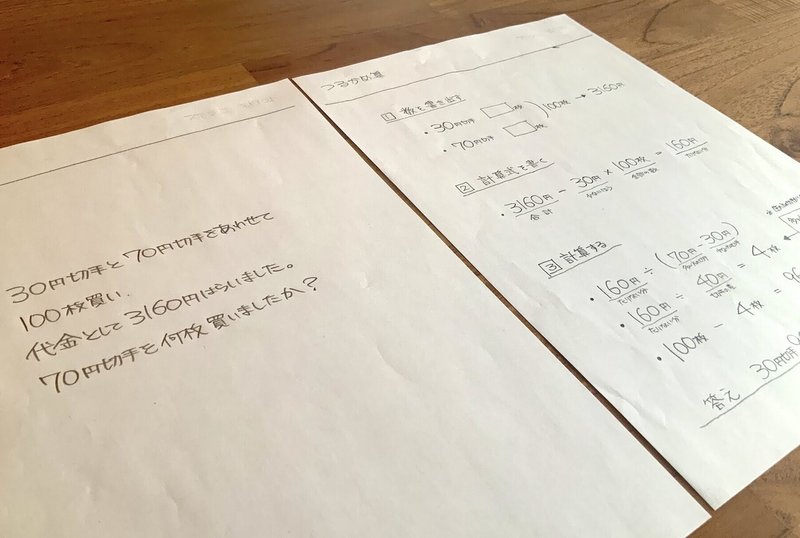 30円切手と70円切手をあわせて
100枚買い
代金として3160円はらいました。
70円切手を何枚買いましたか?
つるかめ算
1 数を書き出す
・30円切手 枚
・70円切手 枚
100枚 → 3160円
2 計算式を書く
・3160円 − 30円 × 100枚 = 160円
合計
3 計算する
・160円 ÷ (70円 − 30円)
・160円 ÷ 40円 = 4枚
・100枚 − 4枚 = 96
答え 30円切手